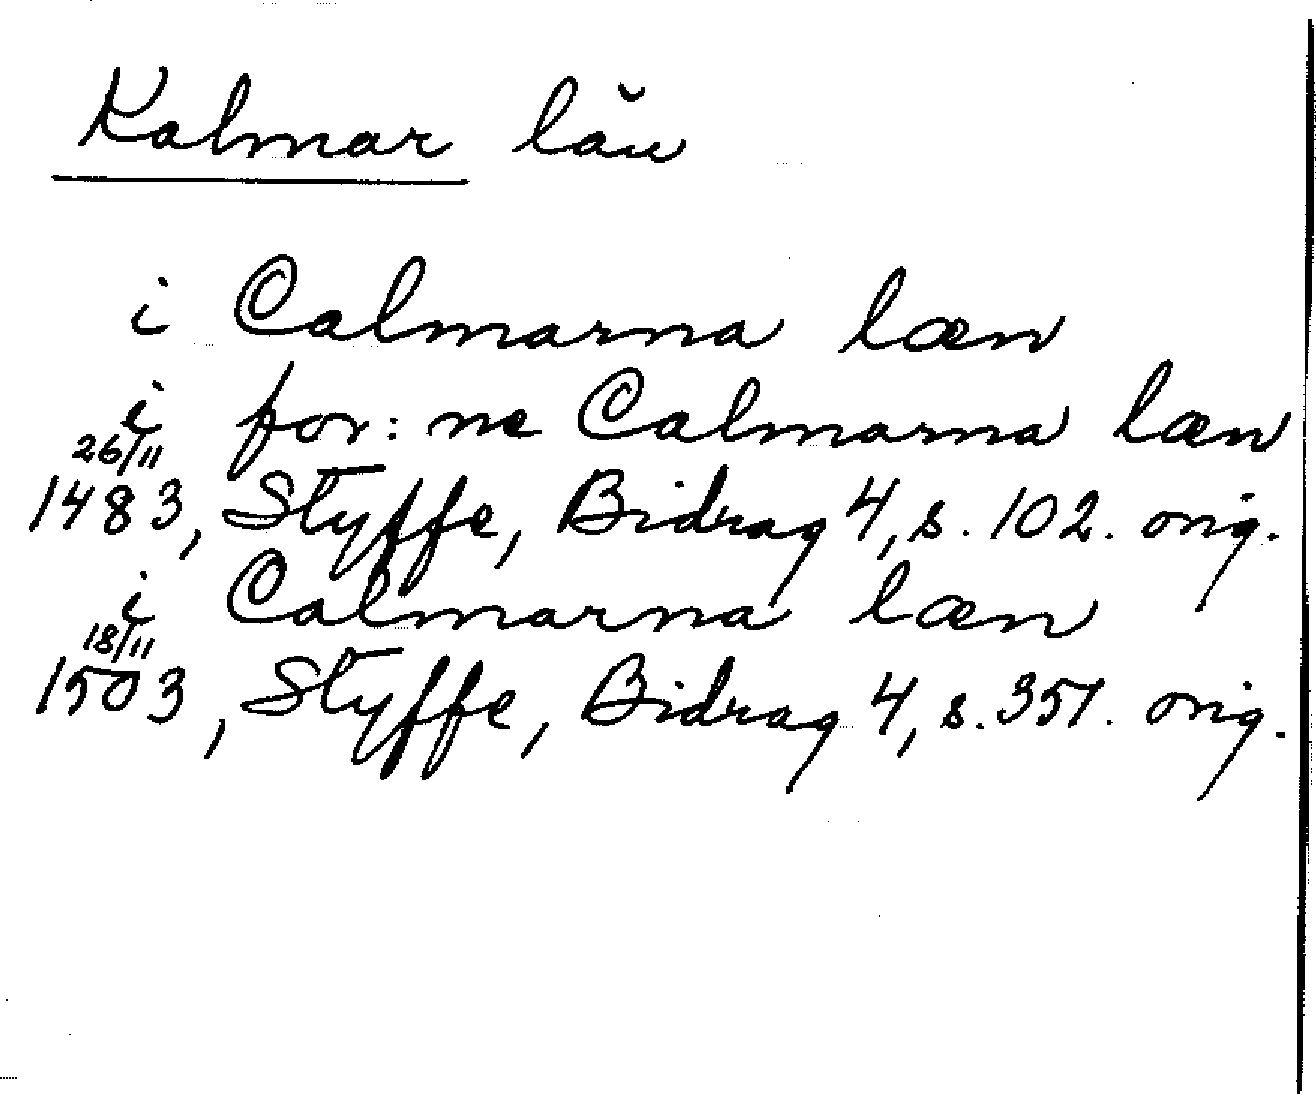 Kalmar län
i Calmarna læn
i for:ne Calmarna læn
26/11
1483, Styffe, Bidrag 4, s. 102. orig.
i Calmarna læn
18/11
1503, Styffe, Bidrag 4, s. 351. orig.